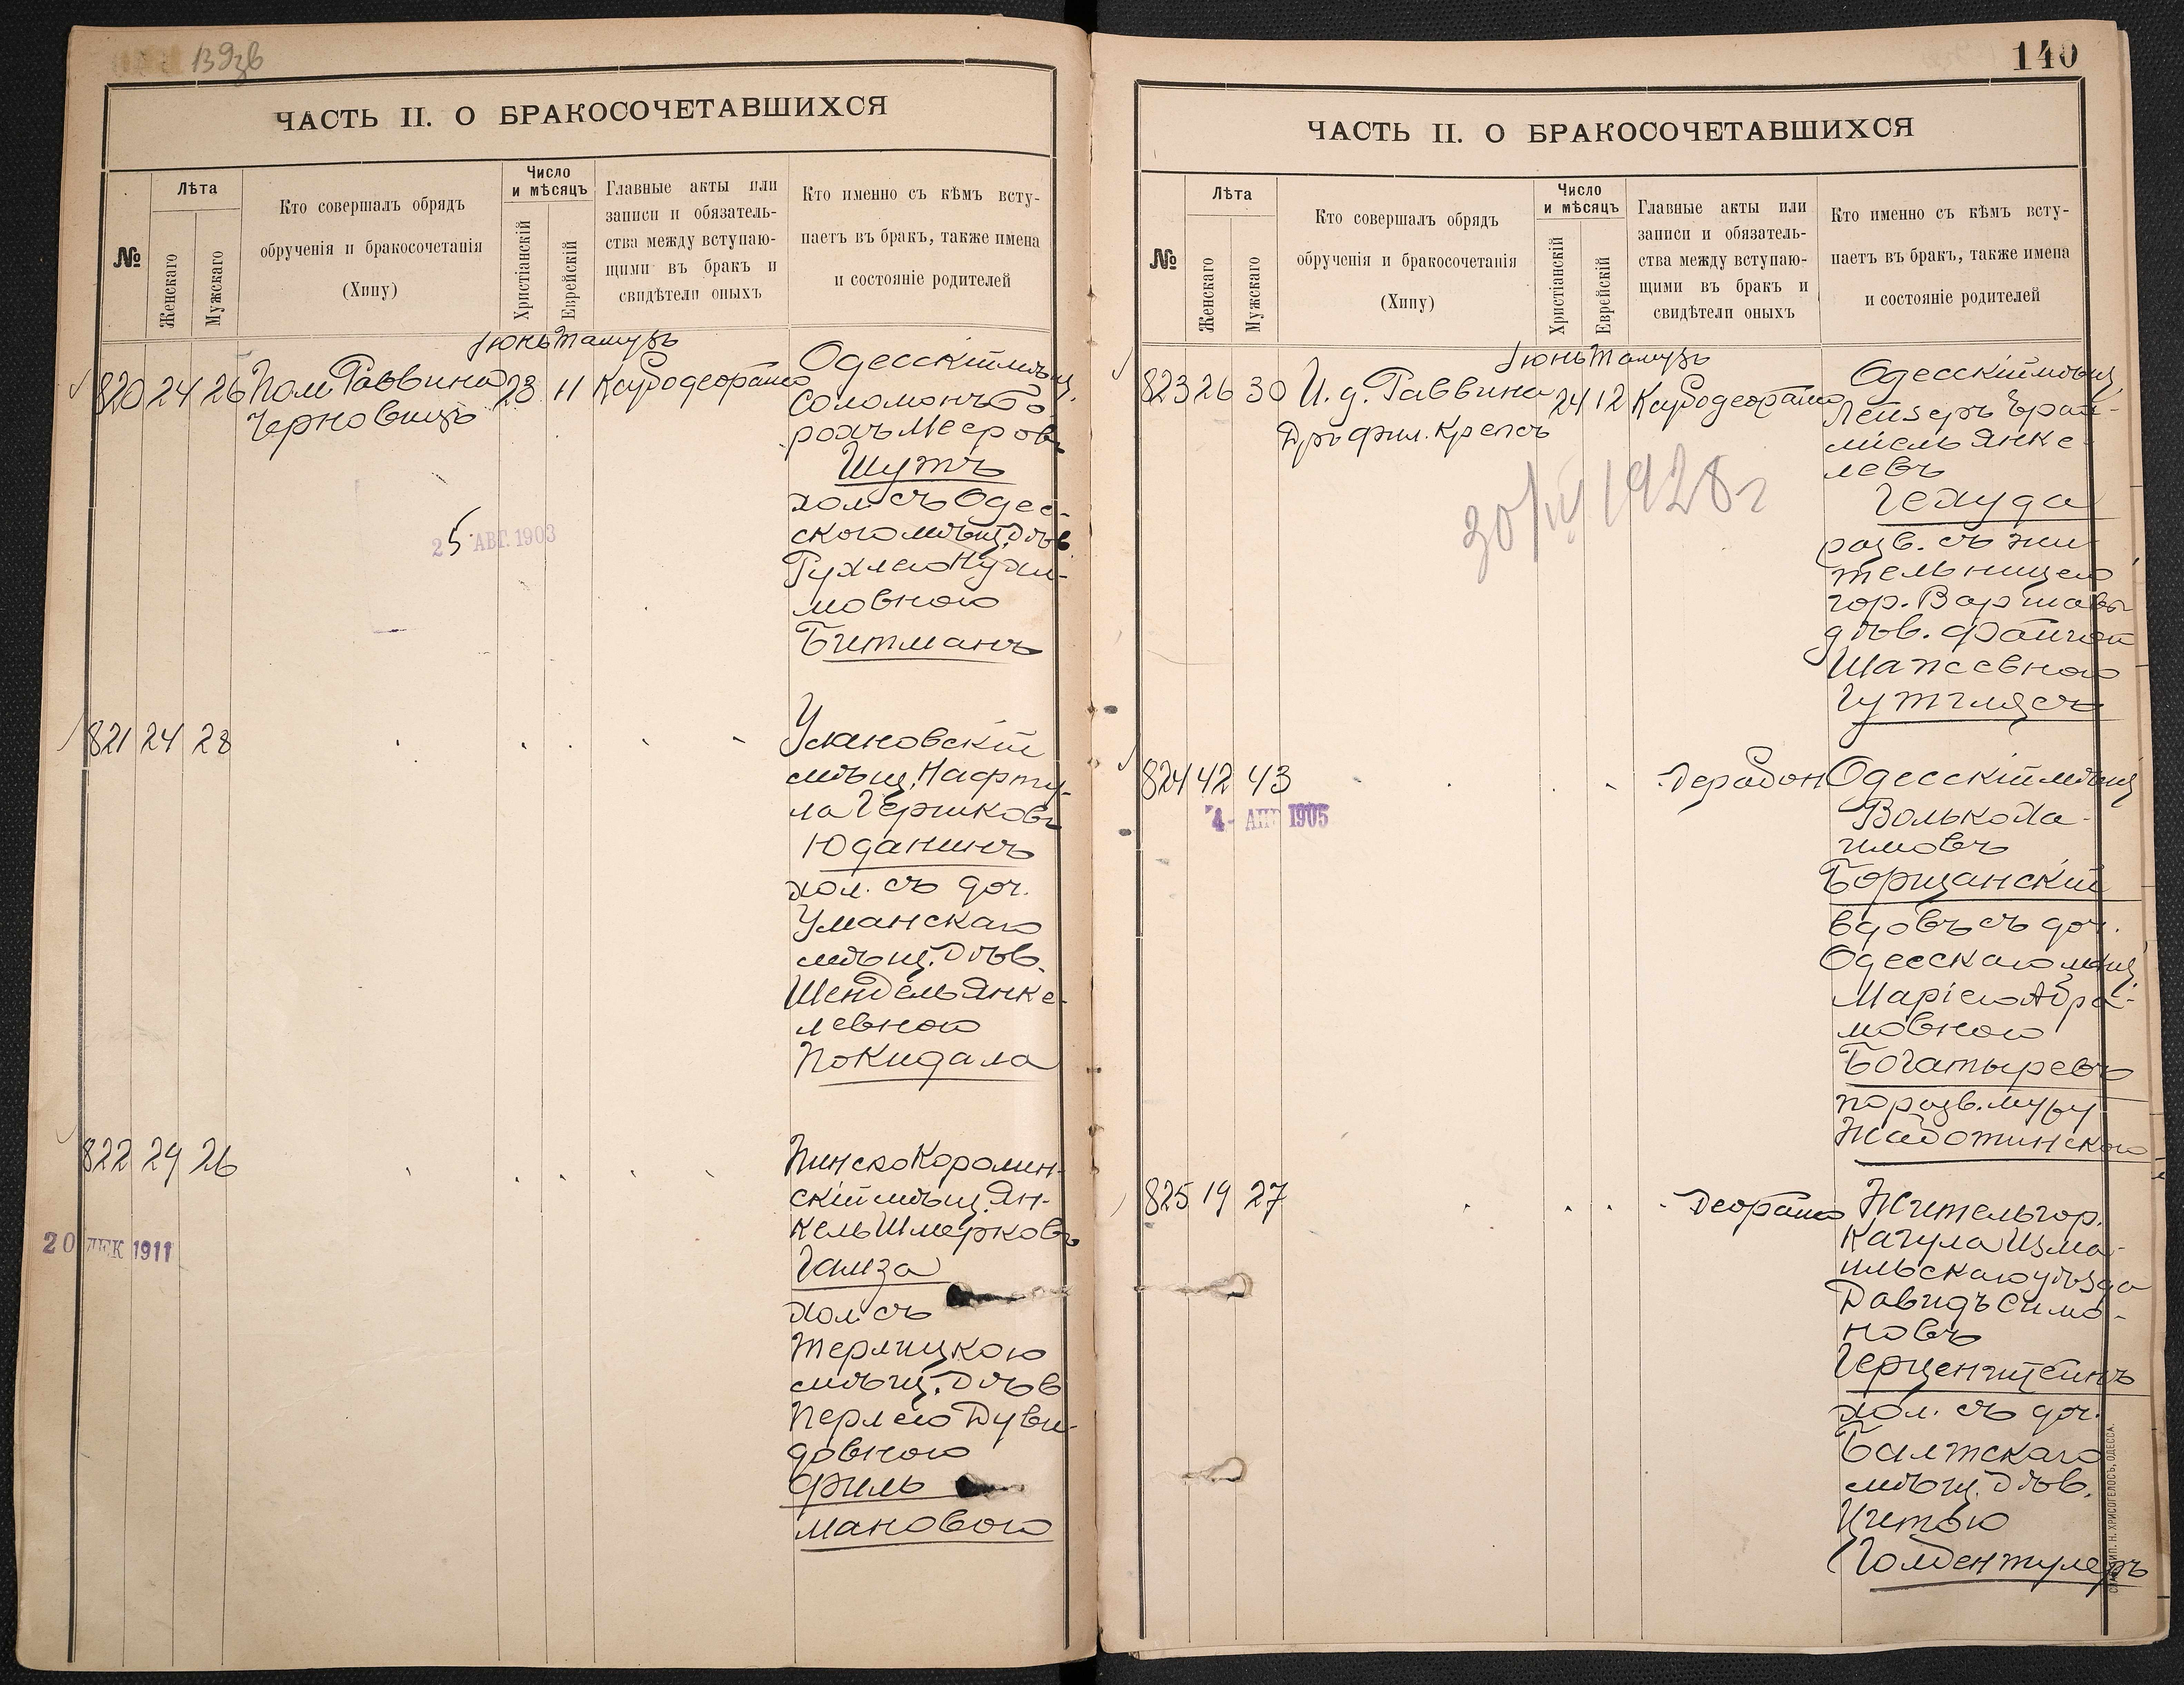 139зв
ЧАСТЬ II. О БРАКОСОЧЕТАВШИХСЯ
№
Лѣта
Женскаго
Мужскаго
Кто совершалъ обрядъ
обрученія и бракосочетанія
(Хипу)
Число
и мѣсяцъ
Христіанскій
Еврейскій
Главные акты или
записи и обязатель-
ства между вступаю-
щими въ бракъ и
свидѣтели оныхъ
Кто именно съ кѣмъ всту-
паетъ въ бракъ, также имена
и состояніе родителей
Іюнь Тамузъ
820 24 26 Пом. Раввина 23 11
Черновицъ
Одесскій мѣщ.
Соломонъ Бо-
рохъ Мееровъ
Шутъ
хол. съ Одес-
скою мѣщ. Дѣв.
Рухлею Нухи-
мовною
Битманъ
25 АВГ. 1903
821 24 28
Улановскій
мѣщ. Нафту-
ла Гершковъ
Юданинъ
хол. съ доч.
Уманскаго
мѣщ. Дѣв.
Шендель Янке-
левною
Покидала
822 29 26
Пинско Каролин-
скій мѣщ. Ян-
кель Шмерковъ
Гамза
хол. съ
Терлицкою
мѣщ. Дѣв
Перлею Дуви-
довною
Филь
мановою
20 ДЕК 1911
140
ЧАСТЬ II. О БРАКОСОЧЕТАВШИХСЯ
№
Лѣта
Женскаго
Мужскаго
Кто совершалъ обрядъ
обрученія и бракосочетанія
(Хипу)
Число
и мѣсяцъ
Христіанскій
Еврейскій
Главные акты или
записи и обязатель-
ства между вступаю-
щими въ бракъ и
свидѣтели оныхъ
Кто именно съ кѣмъ всту-
паетъ въ бракъ, также имена
и состояніе родителей
Іюнь Тамузъ
823 26 30 И. д. Раввина 24 12
Дръ фил. Крепсъ
30/IV 1928 г
Одесскій мѣщ.
Лейзеръ
Янке-
левъ
Гехуда
разв. съ жи-
тельницею
гор. Варшавы
дѣв. Файгой
Шапсевною
Гутглясъ
824 42 43
Одесскій мѣщ
Волько Ха-
имовъ
Борщанскій
вдовъ съ доч.
Одесскаго мѣщ.
Маріею Абра-
мовною
Богатыревъ
по разв. мужу
Жаботинскою
4 - АПР 1905
825 19 27
Житель гор.
Кагула Изма-
ильскаго уѣзда
Давидъ Симо-
новъ
Герценштейнъ
хол. съ доч.
Балтскаго
мѣщ. Дѣв.
Гольдентулеръ
СПАРО-ТИП. Н. ХРИСОГЕЛОСЪ, ОДЕССА.